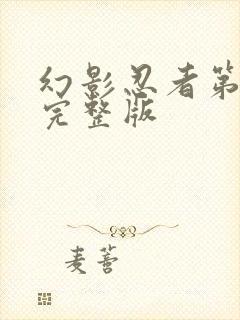 幻影忍者第
完整版
麦蓍